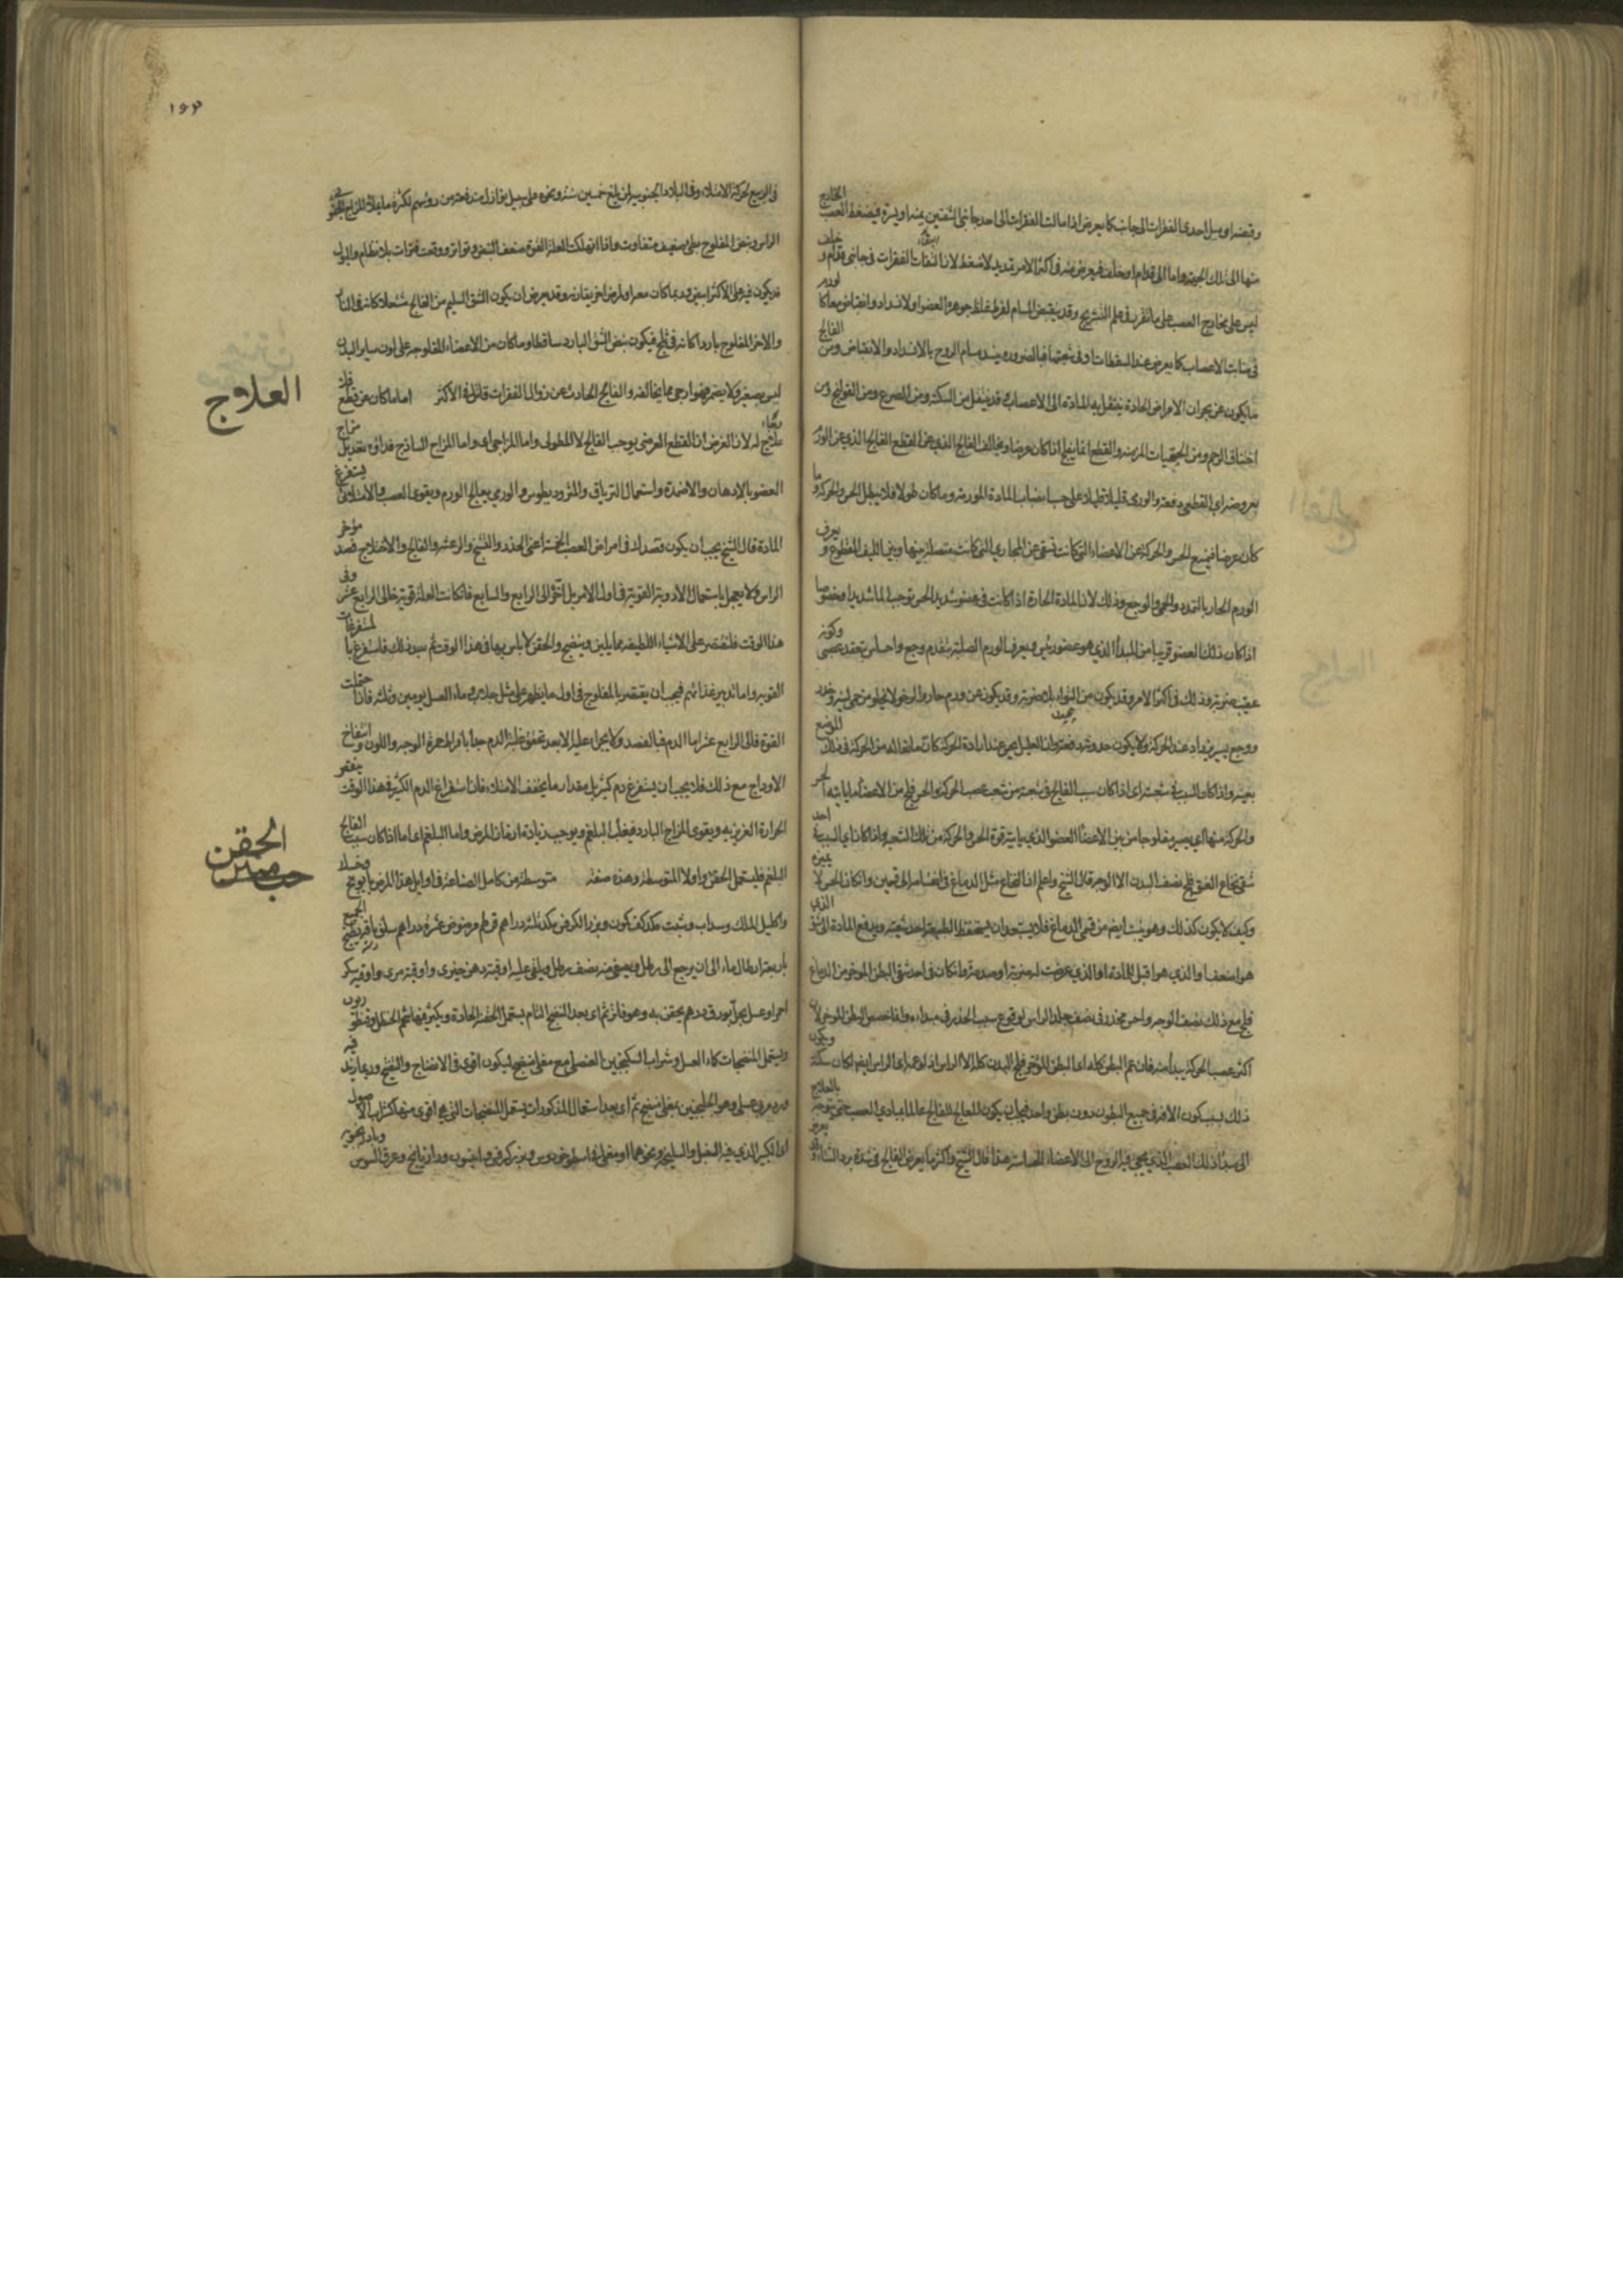 وقبضه او ميل احدى الفقرات الى جانب كما يعرض اذا مالت الفقرات الى احد جانبي الشقين يمنه او يسرة فيضغط العصب الخارج
منها الى تلك الجهة واما الى قدام او خلف فيعرض منه في اكثر الامر تمديد لا ضغط لان التقاء الفقرات في جانبي قدام و خلف
ليس على مخارج العصب على ما تقرر في علم التشريح وقد ينقبض المسام لفرط غلظ جوهر العضو او لانسداد وانقباض معا كما لورم
في منابت الاعصاب كما يعرض عند السقطات او في شعبها فبالضرورة ينسد مسام الروح بالانسداد والانقباض ومن الفالج
ما يكون عن بحران الامراض الحادة ينتقل به المادة الى الاعصاب وقد ينتقل من السكتة ومن الصرع ومن القولنج ومن
اختناق الرحم ومن الحميات المزمنة والقطع انما يفلج اذا كان عرضا ويخالف الفالج الذي عن القطع الفالج الذي عن الورم
بعروضه اي القطعي دفعة والورمي قليلا قليلا على حسب انصباب المادة المورمة وما كان طولا فلا يبطل الحس والحركة وما
كان عرضا فيمنع الحس والحركة عن الاعضاء التي كانت تستقي عن المجاري التي كانت متصلة بينها وبين الليف المقطوع و يعرف
الورم الحار بالتمدد والحمى والوجع وذلك لان المادة الحارة اذا كانت في عضو شديد الحس توجب الما شديدا وخصوصا
اذا كان ذلك العضو قريبا من المبدأ الذي هو عضو رئيس ويعرف الورم الصلب بتقدم وجع واحساس بتعقد عصبي وكونه
عقيب ضربة وذلك في اكثر الامر وقد يكون من التواء بلا ضربة وقد يكون عن ورم حار والرخو لا يخلو من حمى لينة وخدر
ووجع يسير يزداد عند الحركة ولا يكون حدوثه دفعة وان العليل يحس عند ارادة الحركة كأن مانعا له من الحركة في ذلك الموضع
بعينه واذا كان السبب في شعبة اي اذا كان سبب الفالج في شعبة من شعب عصب الحركة والحس فلج من الاعضاء ما ياتيه الحس
والحركة منها اي يصير مفلوجا من بين الاعضاء العضو الذي ياتيه قوة الحس والحركة من تلك الشعبة واذا كان اي السبب في احد
شقي نخاع العنق فلج نصف البدن الا الوجه قال الشيخ واعلم ان النخاع مثل الدماغ في انقسامه الى قسمين وان كان الحس لا يميزه
وكيف لا يكون كذلك وهو ينبت ايضا من قسمي الدماغ فلا يستبعد ان يستحفظ الطبيعة احد شقيه ويدفع المادة الى الشق الذي
هو اضعف او الذي هو اقبل للمادة او الذي عرضت له ضربة او صدمة وان كان في احد شقي البطن المؤخر من الدماغ
فلج مع ذلك نصف الوجه واحس بخدر في نصف جلد الراس لوقوع سبب الخدر في مبداه وانما خصص البطن المؤخر لان
اكثر عصب الحركة يبدأ منه فان عم البطن كله اي البطن المؤخر فلج البدن كله الا الراس اذ لو عم اي الراس ايضا لكان سكتة ويكون
ذلك بسبب كون الافة في جميع البطون دون بطن واحد فيجب ان يكون المعالج للفالج عالما بمبادي العصب حتى يتوجه بالعلاج
الى مبدأ ذلك العصب الذي يجي فيه الروح الى الاعضاء الحساسة هذا قال الشيخ واكثر ما يعرض الفالج في شدة برد الشتاء وقد يعرض
١٦٣
في الربيع لحركة الامتلاء وفي البلاد الجنوبية لمن بلغ خمسين سنة ونحوه على سبيل نوازل مندفعة من رؤسهم لكثرة ما يملأ المزاج الجنوبي
الراس ونبض المفلوج بطي ضعيف متفاوت واذا انهكت العلة القوة ضعف النبض وتواتر ووقعت فترات بلا نظام والبول
قد يكون فيه على الاكثر ابيض وربما كان محمرا ولمرض اخر يقارنه وقد يعرض ان يكون الشق السليم من الفالج مشتعلا كانه في النار
والاخر المفلوج باردا كانه في ثلج فيكون نبض الشق البارد ساقطا وما كان من الاعضاء المفلوجة على لون ساير البدن
ليس بصغير ولا يضمر فهو ارجى مما يخالفه والفالج الحادث عن زوال الفقرات قاتل في الاكثر اما ما كان عن قطع فلا
العلاج
علاج له لان الغرض ان القطع العرضي يوجب الفالج لا الطولي واما المزاجي اي واما المزاج الساذج فداوه تعديل مزاج
العضو بالادهان والاضمدة واستعمال الترياق والمثروديطوس والورمي يعالج الورم ويقوى العصب والامتلائي يستفرغ
المادة قال الشيخ يجب ان يكون قصدك في امراض العصب الخمسة اعني الخدر والتشنج والرعشة والفالج والاختلاج قصد مؤخر
الراس ولا يعجل باستعمال الادوية القوية في اول الامر بل اخر الى الرابع والسابع فان كانت العلة قوية فالى الرابع عشر وفي
هذا الوقت فليقتصر على الاشياء اللطيفة مما يلين وينضج والحقن لا باس بها في هذا الوقت ثم بعد ذلك فاستفرغ با لمستفرغات
القوية واما تدبير غذائهم فيجب ان يقتصر بالمفلوج في اول ما يظهر على مثل جلاب وماء العسل يومين وثلثة فان احتملت
القوة فالى الرابع عشر اما الدم فبالفصد ولا يجرأ عليه الا بعد تحقق غلبة الدم جدا بافراط حمرة الوجه واللون وانتفاخ
الاوداج مع ذلك فلا يجب ان يستفرغ دم كثير بل مقدار ما يخفف الامتلاء فان استفراغ الدم الكثير في هذا الوقت ينقص
الحرارة الغريزية ويقوى المزاج البارد فيغلب البلغم ويوجب زيادة ازمان المرض واما البلغم اي اما اذا كان سبب الفالج
البلغم فليستعمل الحقن واولا المتوسطة وهذه صفة متوسطة من كامل الصناعة في اوايل هذا المرض بابونج
الحقن
واكليل الملك وسداب وشبت مكد كف كمون وبزر الكرفس مكد ثلثة دراهم قرطم مرضوض عشرة دراهم سلق باقة يطبخ الجميع
باربعة ارطال ماء الى ان يرجع الى رطل ويصفى منه نصف رطل ويلقى عليه اوقية دهن خيري واوقية مرى واوقية سكر
احمر او عسل نحل بورق درهم يحقن به وهو فاتر ثم اي بعد النضج التام يستعمل الحقن الحادة ويكثر فيها شحم الحنظل وقنطوريون
ويستعمل المنضجات كماء العسل وشراب السكنجبين العنصلي مع مغلي منضج ليكون اقوى في الانضاج والنضج وربما زيد فيه
ورد مربى عسلي وهو الجلنجبين بمغلي منضج ثم اي بعد استعمال المذكورات يستعمل المنضجات التي هي اقوى منها كشراب الاصول